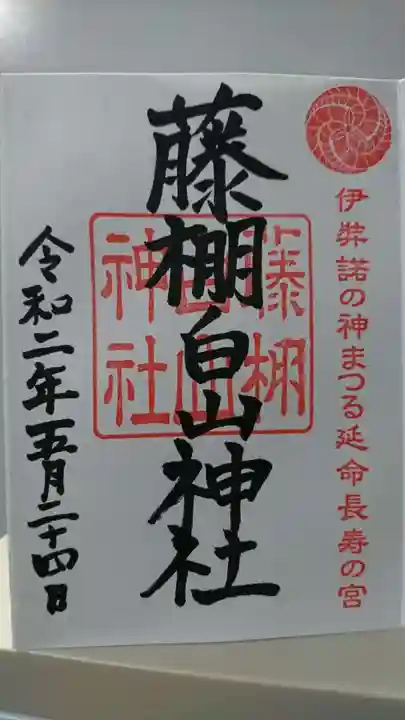 伊弉諾の神まつる延命長寿の宮
藤棚白山神社
藤棚
白山
神社
令和二年五月二十四日